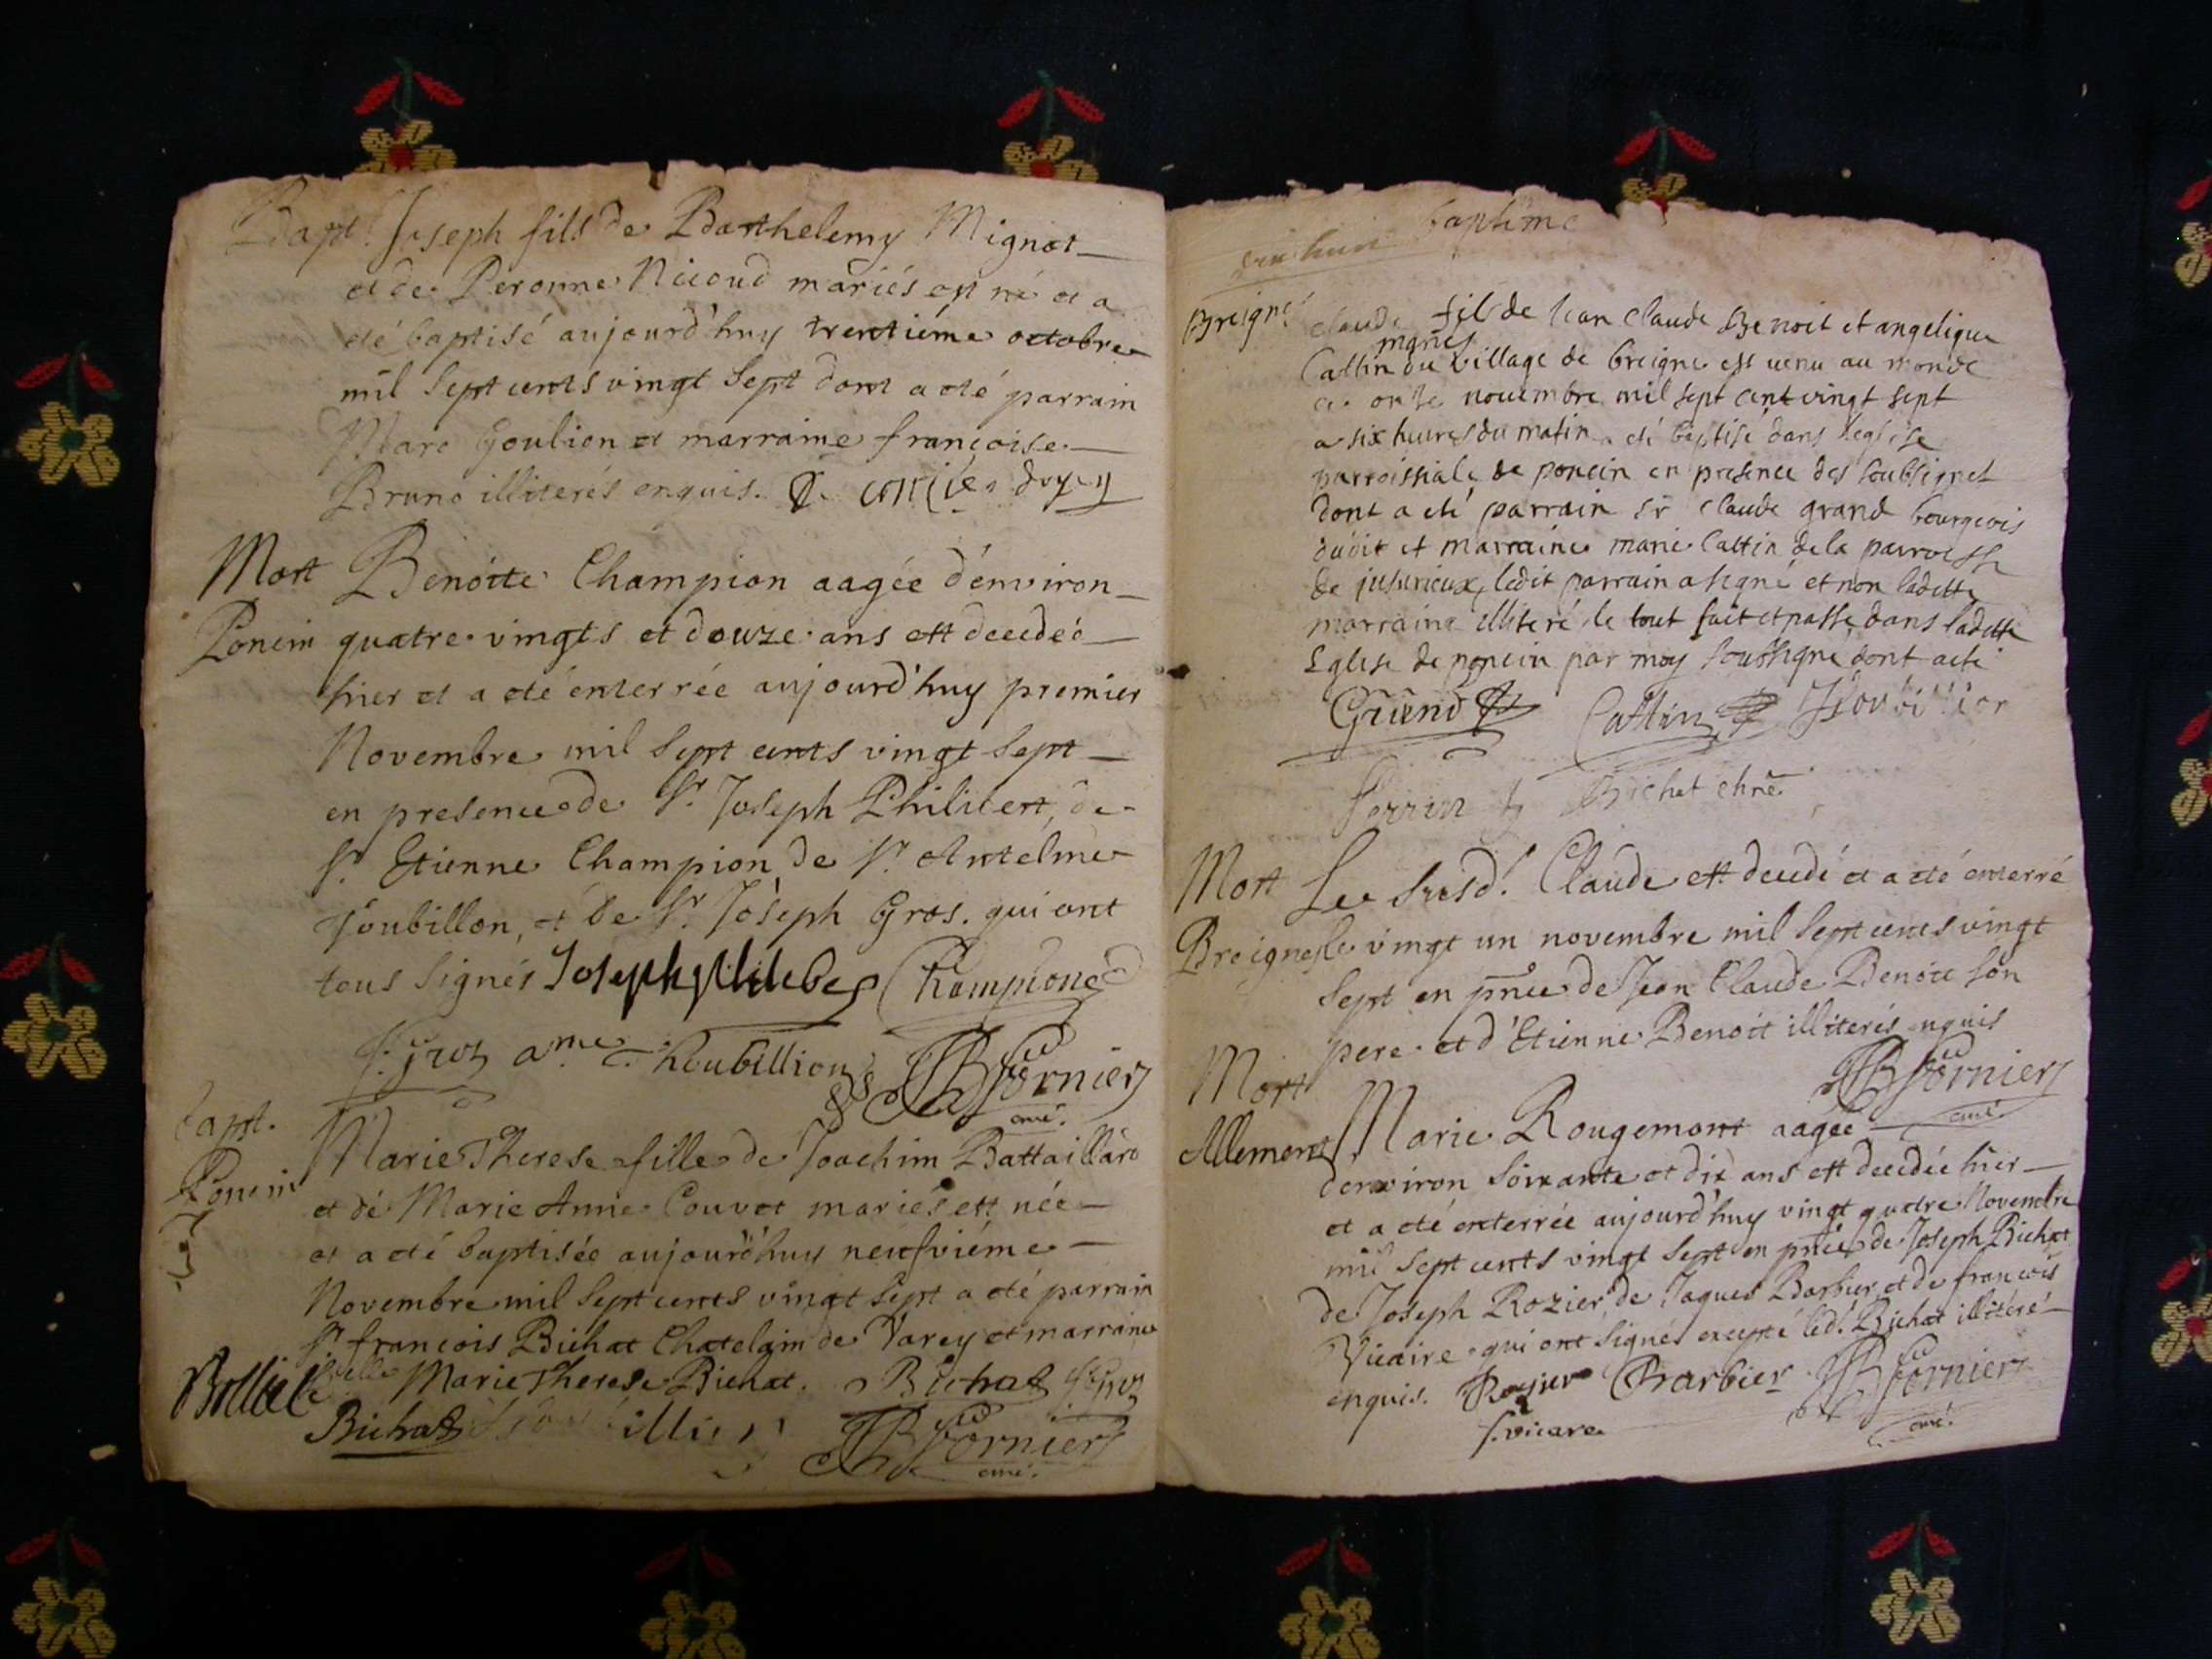 Bapt. Joseph fils de Barthelemy Mignot
et de Peronne Nicoud mariés est né et a
eté baptisé aujourd'huy trentieme octobre
mil sept cents vingt sept dont a eté parrain
Marc Goubion et marraine françoise
Bruno illiterés enquis. doyen
Mort Benoite Champion aagée d'environ
Poncin quatre vingts et douze ans est decedeé
hier et a eté enterrée aujourd'huy premier
Novembre mil sept cents vingt sept
en presence de Sr. Joseph Philibert, de
Sr. Etienne Champion, de Sr. Antelme
Joubillon, et de Sr. Joseph Gros. qui ont
tous signés Joseph philibert Champion
J. gros ame. houbillion JB Fornier
curé.
bapt.
Marie Therese fille de Joachim Battaillard
Poncin
et de Marie Anne Couvet mariés est née
et a eté baptisée aujourd'huy neufviéme
Novembre mil sept cents vingt sept a eté parrain
Sr. françois Bichat Chatelain de Varey et marraine
Marie Therese Bichat. Bichat J. gros
Bichat JB Fornier
curé.
bapteme
Breigne Claude fils de Jean Claude Benoit et angelique
mariés
Cattin du village de breigne est venu au monde
ce onze novembre mil sept cent vingt sept
a six heures du matin a eté baptisé dans leglise
parroissiale de poncin en presence des soubsignet
dont a eté parrain sr claude grand bourgeois
dudit et marraine marie Cattin de la parroisse
de jusurieux, ledit parrain a signé et non ladette
marraine illiteré le tout fait et passe dans ladette
Eglise de poncin par moy soussigne dont acte
Cattin
Perrin Bichet
Mort Le susd. Claude est decedé et a eté enterré
Breigne le vingt un novembre mil sept cents vingt
sept en pnce de Jean Claude Benoit son
pere et d'Etienne Benoit illiterés enquis
JB Fornier
curé
Mort
Allement Marie Rougemont aagée
d'environ soixante et dix ans est decedée hier
et a eté enterrée aujourd'huy vingt quatre Novembre
mil sept cents vingt sept en pnce de Joseph Bichat
de Joseph Rozier, de Jaques Barbier, et de françois
Vicaire qui ont signés excepté led. Bichat illiteré
enquis. Rozier Barbier JB Fornier
f. vicare curé.